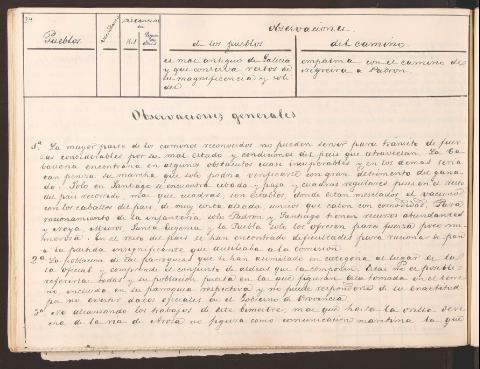 Pueblos
Vecindario
Observaciones
de los pueblos
del camino
el mas antiguo de Galicia
y que conserva restos de
su magnificencia y soli
dez
empalma con el camino de
Negreira a Padron.
Observaciones generales
1ª La mayor parte de los caminos reconocidos no pueden servir para transito de fuer
zas considerables por su mal estado y condiciones del pais que atraviesan. La Ca
balleria encontraria en algunos obstaculos cuasi insuperables y en los demas seria
tan penosa su marcha que solo podria verificarse con gran detrimento del gana
do. Solo en Santiago se encuentra cebada y paja y cuadras regulares pues en el resto
del pais recorrido mas que cuadras son establos donde estan mezclados el vacuno
con los caballos del pais de muy corta alzada unicos que caben con comodidad. Para
racionamiento de la infanteria solo Padron y Santiago tienen recursos abundantes
y Noya Muros Santa Eugenia y la Puebla solo los ofrecen para fuerza poco nu
merosa. En el resto del pais se han encontrado dificultades para racionar a pan
a la partida insignificante que escoltaba a la comision.
2ª La poblacion de las parroquias que se han asimilado en categoria al lugar es la
la oficial y comprende el conjunto de aldeas que la componen. Casi no es posible
referirse todas y su poblacion puesta en la que figuran esta tomada en el terre
no, incluida en la parroquia respectiva y no puede responderse de su exactitud
por no existir datos oficiales en el Gobierno de Provincia.
3ª No alcanzando los trabajos de este bimestre, mas que hasta la orilla dere
cha de la ria de Arosa no figura como comunicacion maritima la que